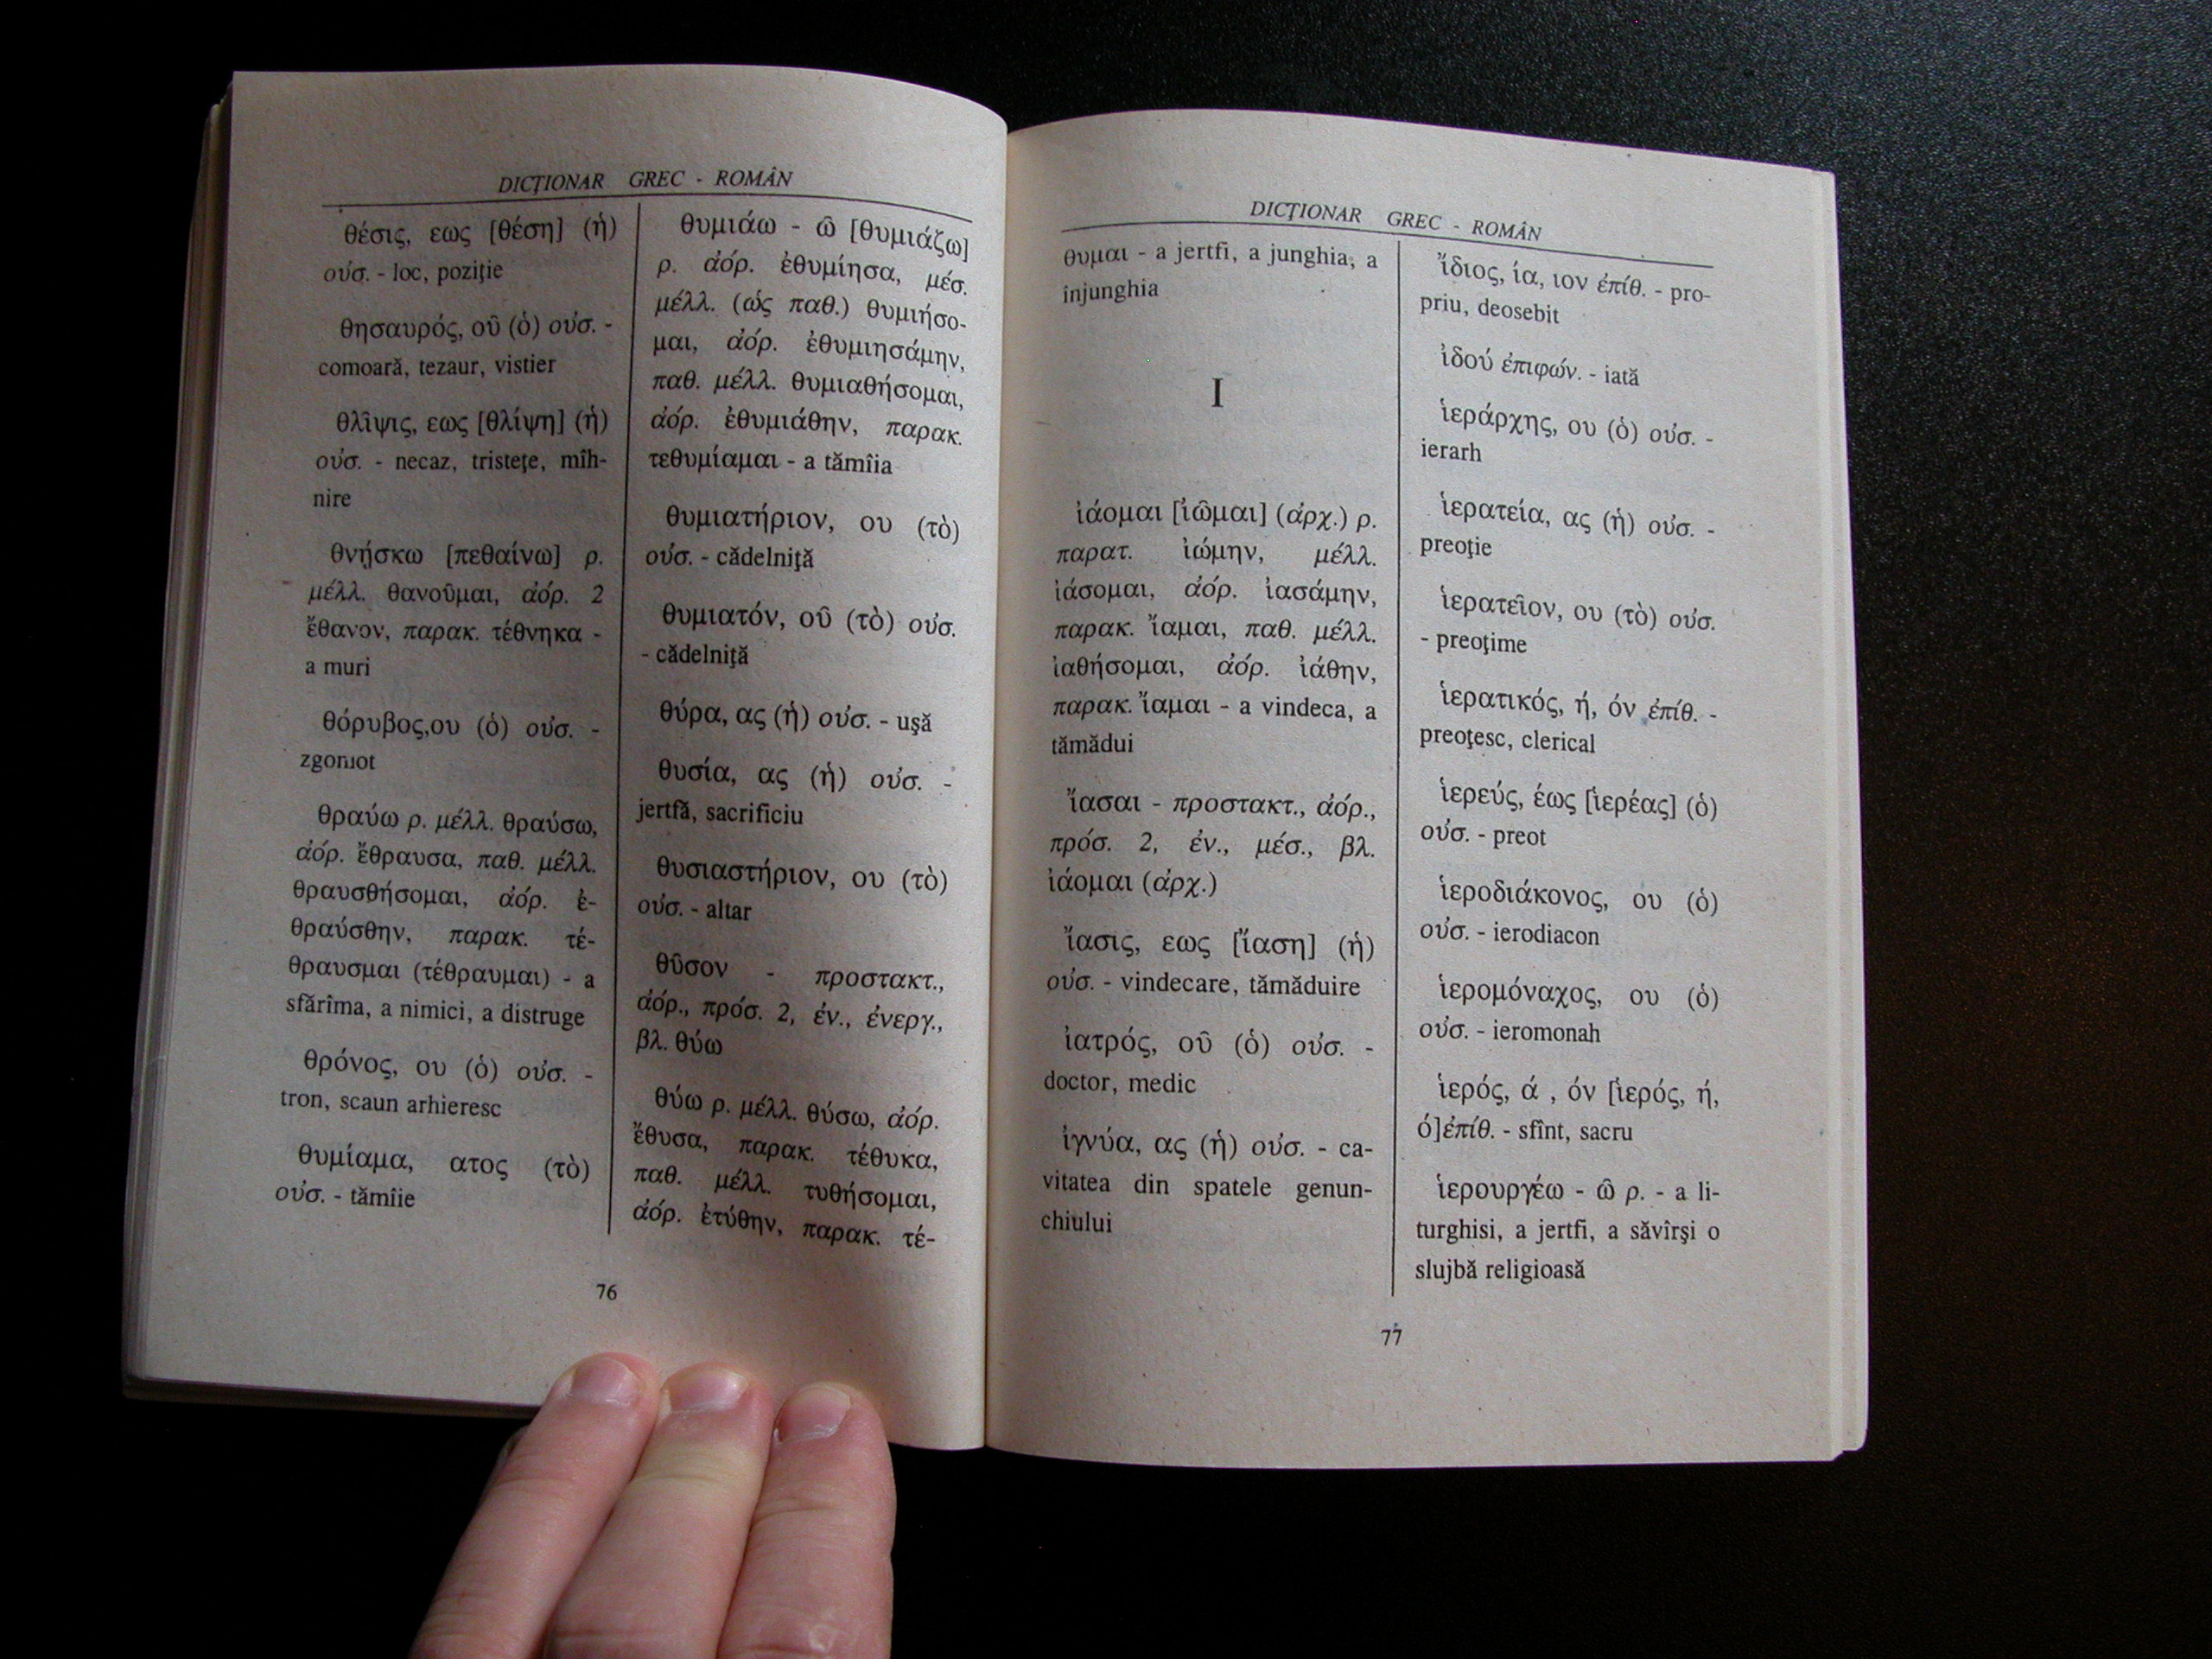 DICŢIONAR GREC - ROMÂN
θέσις, εως [θέση] (ἡ)
οὐσ. - loc, poziţie
θησαυρός, οῦ (ὁ) οὐσ. -
comoară, tezaur, vistier
θλῖψις, εως [θλίψη] (ἡ)
οὐσ. - necaz, tristeţe, mîh-
nire
θνῄσκω [πεθαίνω] ρ.
μέλλ. θανοῦμαι, ἀόρ. 2
ἔθανον, παρακ. τέθνηκα -
a muri
θόρυβος,ου (ὁ) οὐσ. -
zgomot
θραύω ρ. μέλλ. θραύσω,
ἀόρ. ἔθραυσα, παθ. μέλλ.
θραυσθήσομαι, ἀόρ. ἐ-
θραύσθην, παρακ. τέ-
θραυσμαι (τέθραυμαι) - a
sfărîma, a nimici, a distruge
θρόνος, ου (ὁ) οὐσ. -
tron, scaun arhieresc
θυμίαμα, ατος (τὸ)
οὐσ. - tămîie
θυμιάω - ῶ [θυμιάζω]
ρ. ἀόρ. ἐθυμίησα, μέσ.
μέλλ. (ὡς παθ.) θυμιήσο-
μαι, ἀόρ. ἐθυμιησάμην,
παθ. μέλλ. θυμιαθήσομαι,
ἀόρ. ἐθυμιάθην, παρακ.
τεθυμίαμαι - a tămîia
θυμιατήριον, ου (τὸ)
οὐσ. - cădelniţă
θυμιατόν, οῦ (τὸ) οὐσ.
- cădelniţă
θύρα, ας (ἡ) οὐσ. - uşă
θυσία, ας (ἡ) οὐσ. -
jertfă, sacrificiu
θυσιαστήριον, ου (τὸ)
οὐσ. - altar
θῦσον - προστακτ.,
ἀόρ., πρόσ. 2, ἐν., ἐνεργ.,
βλ. θύω
θύω ρ. μέλλ. θύσω, ἀόρ.
ἔθυσα, παρακ. τέθυκα,
παθ. μέλλ. τυθήσομαι,
ἀόρ. ἐτύθην, παρακ. τέ-
76
DICŢIONAR GREC - ROMÂN
θυμαι - a jertfi, a junghia, a
înjunghia
I
ἰάομαι [ἰῶμαι] (ἀρχ.) ρ.
παρατ. ἰώμην, μέλλ.
ἰάσομαι, ἀόρ. ἰασάμην,
παρακ. ἴαμαι, παθ. μέλλ.
ἰαθήσομαι, ἀόρ. ἰάθην,
παρακ. ἴαμαι - a vindeca, a
tămădui
ἴασαι - προστακτ., ἀόρ.,
πρόσ. 2, ἐν., μέσ., βλ.
ἰάομαι (ἀρχ.)
ἴασις, εως [ἴαση] (ἡ)
οὐσ. - vindecare, tămăduire
ἰατρός, οῦ (ὁ) οὐσ. -
doctor, medic
ἰγνύα, ας (ἡ) οὐσ. - ca-
vitatea din spatele genun-
chiului
ἴδιος, ία, ιον ἐπίθ. - pro-
priu, deosebit
ἰδού ἐπιφών. - iată
ἱεράρχης, ου (ὁ) οὐσ. -
ierarh
ἱερατεία, ας (ἡ) οὐσ. -
preoţie
ἱερατεῖον, ου (τὸ) οὐσ.
- preoţime
ἱερατικός, ή, όν ἐπίθ. -
preoţesc, clerical
ἱερεύς, έως [ἱερέας] (ὁ)
οὐσ. - preot
ἱεροδιάκονος, ου (ὁ)
οὐσ. - ierodiacon
ἱερομόναχος, ου (ὁ)
οὐσ. - ieromonah
ἱερός, ά , όν [ἱερός, ή,
ό]ἐπίθ. - sfînt, sacru
ἱερουργέω - ῶ ρ. - a li-
turghisi, a jertfi, a săvîrşi o
slujbă religioasă
77